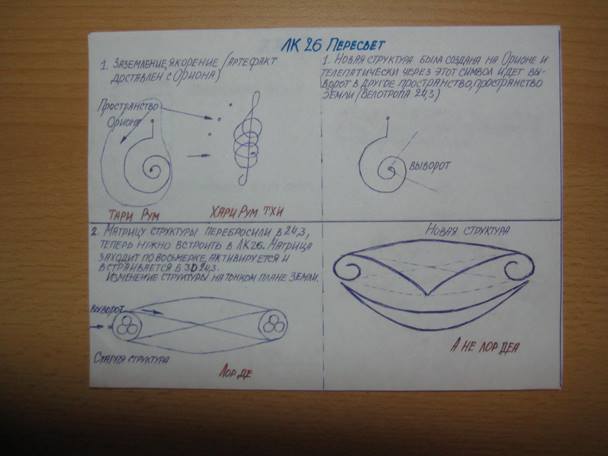 ЛК 26 ПЕРЕСВЕТ
1. ЗАЗЕМЛЕНИЕ, ЯКОРЕНИЕ (АРТЕФАКТ
ДОСТАВЛЕН С ОРИОНА)
ПРОСТРАНСТВО
ОРИОНА
ТАРИ РУМ
ХАРИ РУМ ТХИ
1. НОВАЯ СТРУКТУРА БЫЛА СОЗДАНА НА ОРИОНЕ И
ТЕЛЕПАТИЧЕСКИ ЧЕРЕЗ ЭТОТ СИМВОЛ ИДЕТ ВЫ-
ВОРОТ В ДРУГОЕ ПРОСТРАНСТВО, ПРОСТРАНСТВО
ЗЕМЛИ (ВЕЛОТРОПА 24,3)
ВЫВОРОТ
2. МАТРИЦУ СТРУКТУРЫ ПЕРЕБРОСИЛИ В 24,3,
ТЕПЕРЬ НУЖНО ВСТРОИТЬ В ЛК26. МАТРИЦА
ЗАХОДИТ ПО ВОСЬМЕРКЕ, АКТИВИРУЕТСЯ И
ВСТРАИВАЕТСЯ В 3D 24,3.
ИЗМЕНЕНИЕ СТРУКТУРЫ НА ТОНКОМ ПЛАНЕ ЗЕМЛИ.
ВЫВОРОТ
СТАРАЯ СТРУКТУРА
ЛОР ДЕ
НОВАЯ СТРУКТУРА
А НЕ ЛОР ДЕА